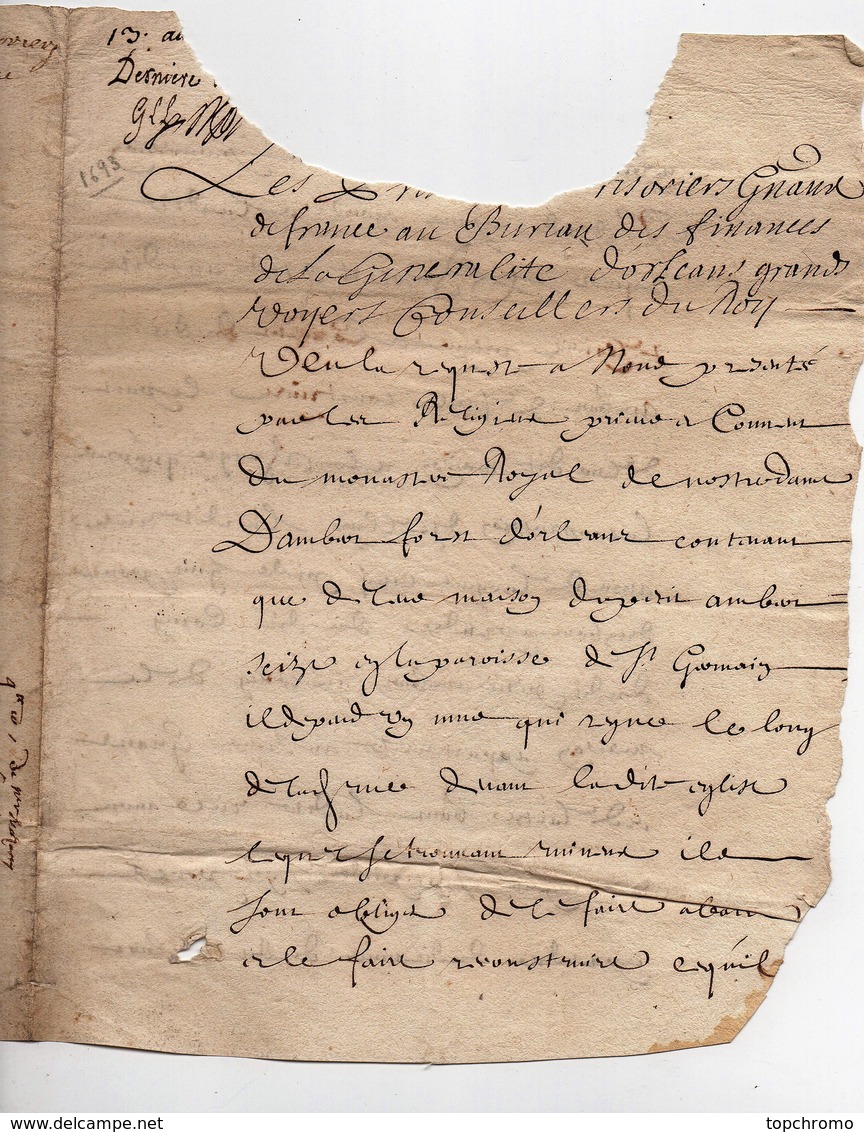 13. au
Derniere
1693
Les Pre risoriers Gnaux
de france au Bureau des finances
de La Generalite d'orleans grands
Voyers Conseillers du Roy
Veu la requeste a Nous presenté
par les Religieux prieur & Couvent
du monastere Royal de nostre dame
D'ambert forest d'orleans contenant
que de leur maison du petit ambert
seize en la paroisse de St Germain
il depend un mur qui regne le long
de la rue devant ladite eglise
lequel se trouvant ruineux ils
sont obligez de le faire abattre
et le faire reconstruire ce qu'il
topchromo